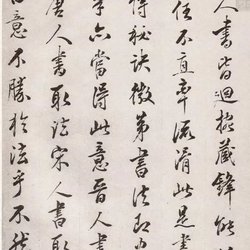 人書皆迴捥藏鋒能
住不直率流滑此是書
得秘訣微第書法即
亦當得此意晉人書
唐人書取法宋人書取
意不勝於法乎不然